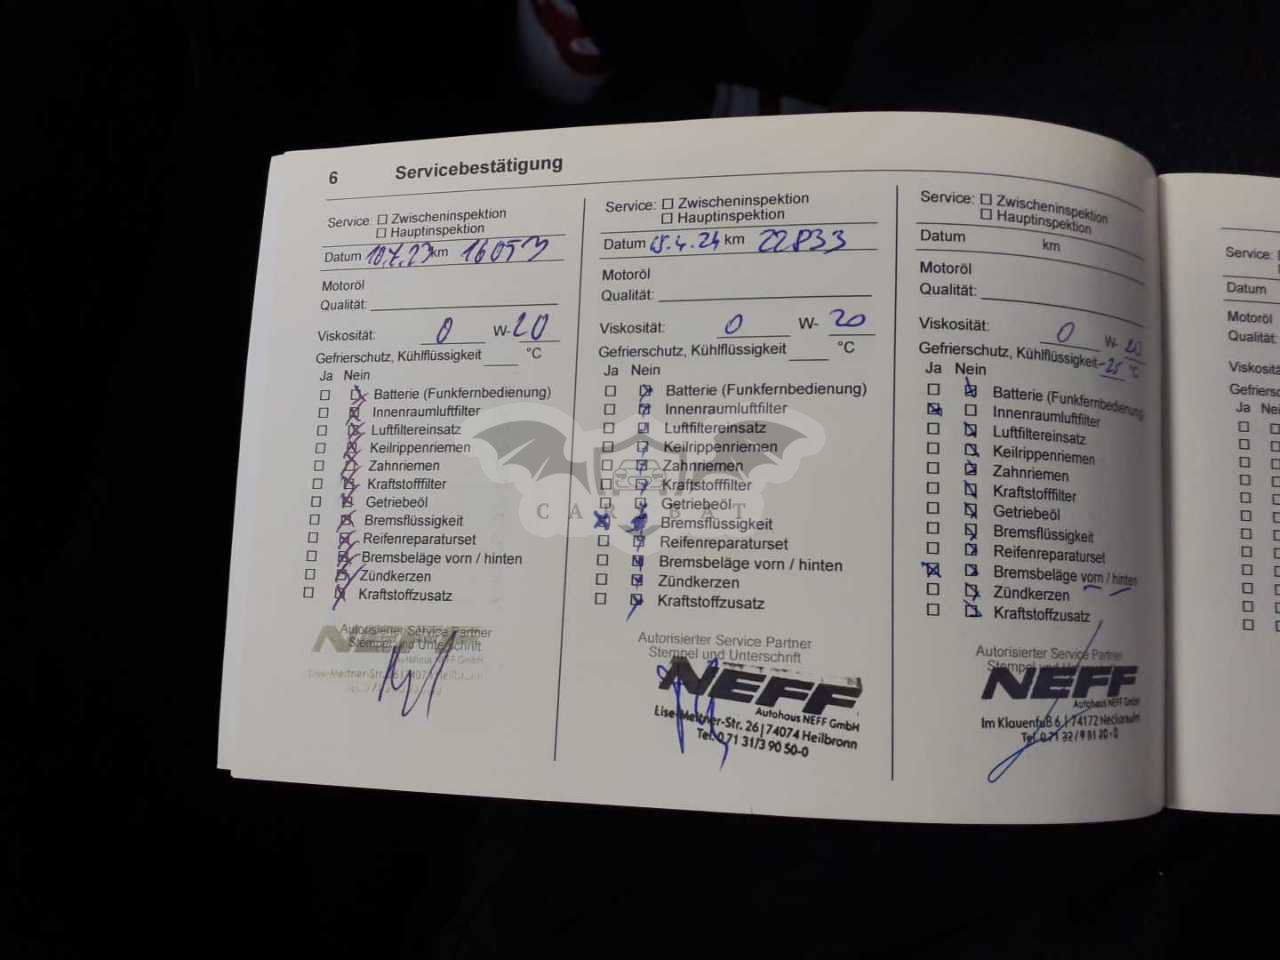 6 Servicebestätigung
Service: Zwischeninspektion
Hauptinspektion
Datum 10.7.23 km 16053
Motoröl
Qualität:
Viskosität: 0 W-20
Gefrierschutz, Kühlflüssigkeit °C
Ja Nein
Batterie (Funkfernbedienung)
Innenraumluftfilter
Luftfiltereinsatz
Keilrippenriemen
Zahnriemen
Kraftstofffilter
Getriebeöl
Bremsflüssigkeit
Reifenreparaturset
Bremsbeläge vorn / hinten
Zündkerzen
Kraftstoffzusatz
Autorisierter Service Partner
Stempel und Unterschrift
NEFF
Autohaus NEFF GmbH
Lise-Meitner-Str. 26 | 74074 Heilbronn
Service: Zwischeninspektion
Hauptinspektion
Datum 15.4.24 km 22833
Motoröl
Qualität:
Viskosität: 0 W-20
Gefrierschutz, Kühlflüssigkeit °C
Ja Nein
Batterie (Funkfernbedienung)
Innenraumluftfilter
Luftfiltereinsatz
Keilrippenriemen
Zahnriemen
Kraftstofffilter
Getriebeöl
Bremsflüssigkeit
Reifenreparaturset
Bremsbeläge vorn / hinten
Zündkerzen
Kraftstoffzusatz
Autorisierter Service Partner
Stempel und Unterschrift
NEFF
Autohaus NEFF GmbH
Lise-Meitner-Str. 26 | 74074 Heilbronn
Tel. 0 71 31/3 90 50-0
Service: Zwischeninspektion
Hauptinspektion
Datum km
Motoröl
Qualität:
Viskosität: 0 W-20
Gefrierschutz, Kühlflüssigkeit -25 °C
Ja Nein
Batterie (Funkfernbedienung)
Innenraumluftfilter
Luftfiltereinsatz
Keilrippenriemen
Zahnriemen
Kraftstofffilter
Getriebeöl
Bremsflüssigkeit
Reifenreparaturset
Bremsbeläge vorn / hinten
Zündkerzen
Kraftstoffzusatz
Autorisierter Service Partner
Stempel und
NEFF
Autohaus NEFF GmbH
Im Klauenfuß 6 | 74172 Neckarsulm
Service:
Datum
Motoröl
Qualität:
Ja
CAR BAT